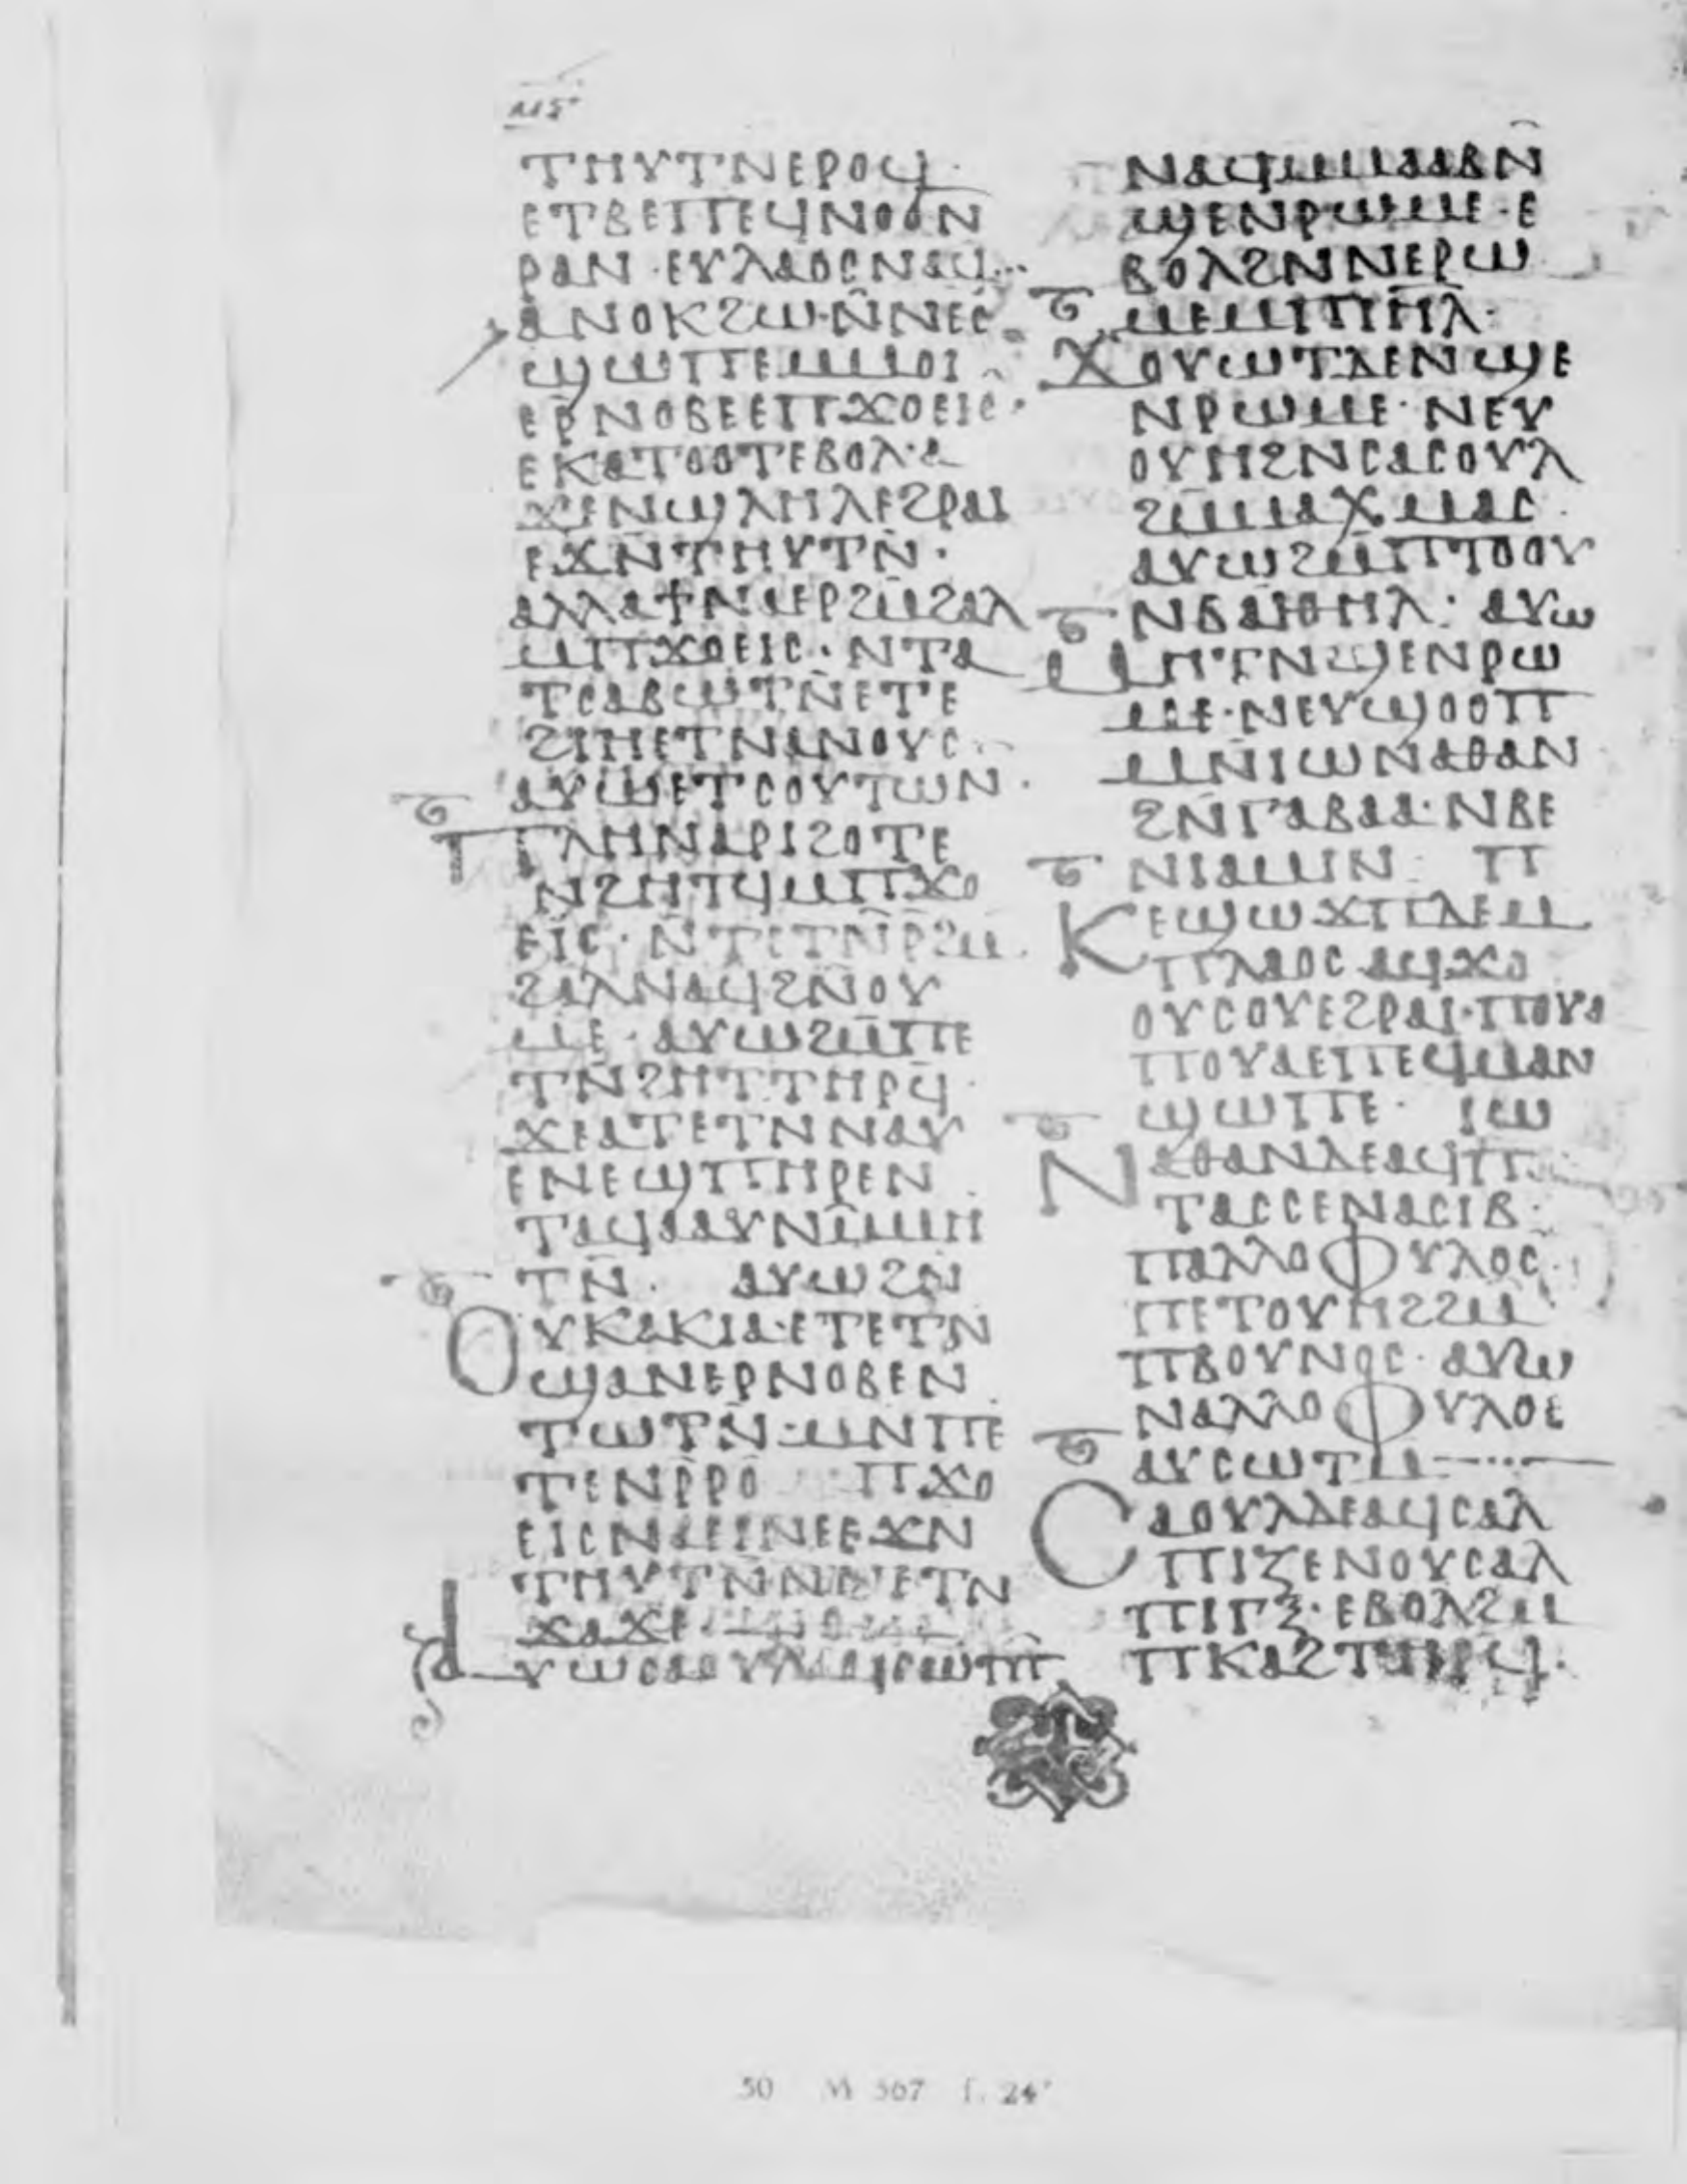 ⲙⲋ
ⲧⲏⲩⲧⲛⲉⲣⲟϥ·
ⲉⲧⲃⲉⲡⲉϥⲛⲟϭⲛ
ⲣⲁⲛ·ⲉⲩⲗⲁⲟⲥⲛⲁϥ
ⲁⲛⲟⲕϩⲱ·ⲛ̄ⲛⲉⲥ
ϣⲱⲡⲉⲙⲙⲟⲓ
ⲉⲣ̄ⲛⲟⲃⲉⲉⲡϫⲟⲉⲓⲥ·
ⲉⲕⲁⲧⲟⲟⲧⲉⲃⲟⲗ·ⲉ
ϫⲓⲛϣⲗⲏⲗⲉϩⲣⲁⲓ
ⲉϫⲛ̄ⲧⲏⲩⲧⲛ̄·
ⲁⲗⲗⲁϯⲛⲁⲉⲣϩⲙ̄ϩⲁⲗ
ⲙ̄ⲡϫⲟⲉⲓⲥ·ⲛⲧⲁ
ⲧⲥⲁⲃⲱⲧⲛ̄ⲉⲧⲉ
ϩⲓⲏⲉⲧⲛⲁⲛⲟⲩⲥ
ⲁⲩⲱⲉⲧⲥⲟⲩⲧⲱⲛ·
ⲡⲗⲏⲛⲁⲣⲓϩⲟⲧⲉ
ⲛϩⲏⲧϥⲙ̄ⲡϫⲟ
ⲉⲓⲥ·ⲛ̄ⲧⲉⲧⲛ̄ⲣ̄ϩⲙ
ϩⲁⲗⲛⲁϥϩⲛ̄ⲟⲩ
ⲙⲉ·ⲁⲩⲱϩⲙ̄ⲡⲉ
ⲧⲛ̄ϩⲏⲧⲧⲏⲣϥ̄·
ϫⲉⲁⲧⲉⲧⲛⲛⲁⲩ
ⲉⲛⲉϣⲡⲏⲣⲉⲛ
ⲧⲁϥⲁⲁⲩⲛⲙ̄ⲙⲏ
ⲧⲛ̄· ⲁⲩⲱϩⲛ
ⲟⲩⲕⲁⲕⲓⲁ·ⲉⲧⲉⲧⲛ
ϣⲁⲛⲉⲣⲛⲟⲃⲉⲛ
ⲧⲱⲧⲛ̄·ⲙⲛⲡⲉ
ⲧⲉⲛⲣ̄ⲣⲟ ⲡϫⲟ
ⲉⲓⲥⲛⲁⲉⲓⲛⲉⲉϫⲛ
ⲧⲏⲩⲧⲛ̄ⲛⲛⲉⲧⲛ
ϫⲁϫⲉ
ⲁⲩⲱⲥⲁⲟⲩⲗⲁϥⲥⲱⲧⲡ̄
ⲛⲁϥⲙⲙⲁⲁⲃⲛ̄
ϣⲉⲛⲣⲱⲙⲉ·ⲉ
ⲃⲟⲗϩⲛⲛⲉⲣⲱ
ⲙⲉⲙⲡⲓⲏ̄ⲗ·
ϫⲟⲩⲱⲧⲇⲉⲛϣⲉ
ⲛⲣⲱⲙⲉ·ⲛⲉⲩ
ⲟⲩⲏϩⲛⲥⲁⲥⲟⲩⲗ
ϩⲙ̄ⲙⲁⲭⲙⲁⲥ·
ⲁⲩⲱϩⲙ̄ⲡⲧⲟⲟⲩ
ⲛⲃⲁⲓⲑⲏⲗ: ⲁⲩⲱ
ⲙⲏⲧⲛϣⲉⲛⲣⲱ
ⲙⲉ·ⲛⲉⲩϣⲟⲟⲡ
ⲙⲛ̄ⲓⲱⲛⲁⲑⲁⲛ
ϩⲛ̄ⲅⲁⲃⲁⲁ·ⲛⲃⲉ
ⲛⲓⲁⲙⲓⲛ· ⲡ
ⲕⲉϣⲱϫⲡⲇⲉⲙ
ⲡⲗⲁⲟⲥⲁϥϫⲟ
ⲟⲩⲥⲟⲩⲉϩⲣⲁⲓ·ⲡⲟⲩⲁ
ⲡⲟⲩⲁⲉⲡⲉϥⲙⲁⲛ
ϣⲱⲡⲉ· ⲓⲱ
ⲛⲁⲑⲁⲛⲇⲉⲁϥⲡ
ⲧⲁⲥⲥⲉⲛⲁⲥⲓⲃ·
ⲡⲁⲗⲗⲟⲫⲩⲗⲟⲥ·
ⲡⲉⲧⲟⲩⲏϩϩⲙ
ⲡⲃⲟⲩⲛⲟⲥ·ⲁⲩⲱ
ⲛⲁⲗⲗⲟⲫⲩⲗⲟⲥ
ⲁⲩⲥⲱⲧⲙ
ⲥⲁⲟⲩⲗⲇⲉⲁϥⲥⲁⲗ
ⲡⲓⲍⲉⲛⲟⲩⲥⲁⲗ
ⲡⲓⲅⲝ·ⲉⲃⲟⲗϩⲙ
ⲡⲕⲁϩⲧⲏⲣϥ·
50 M 567 f. 24ᵛ